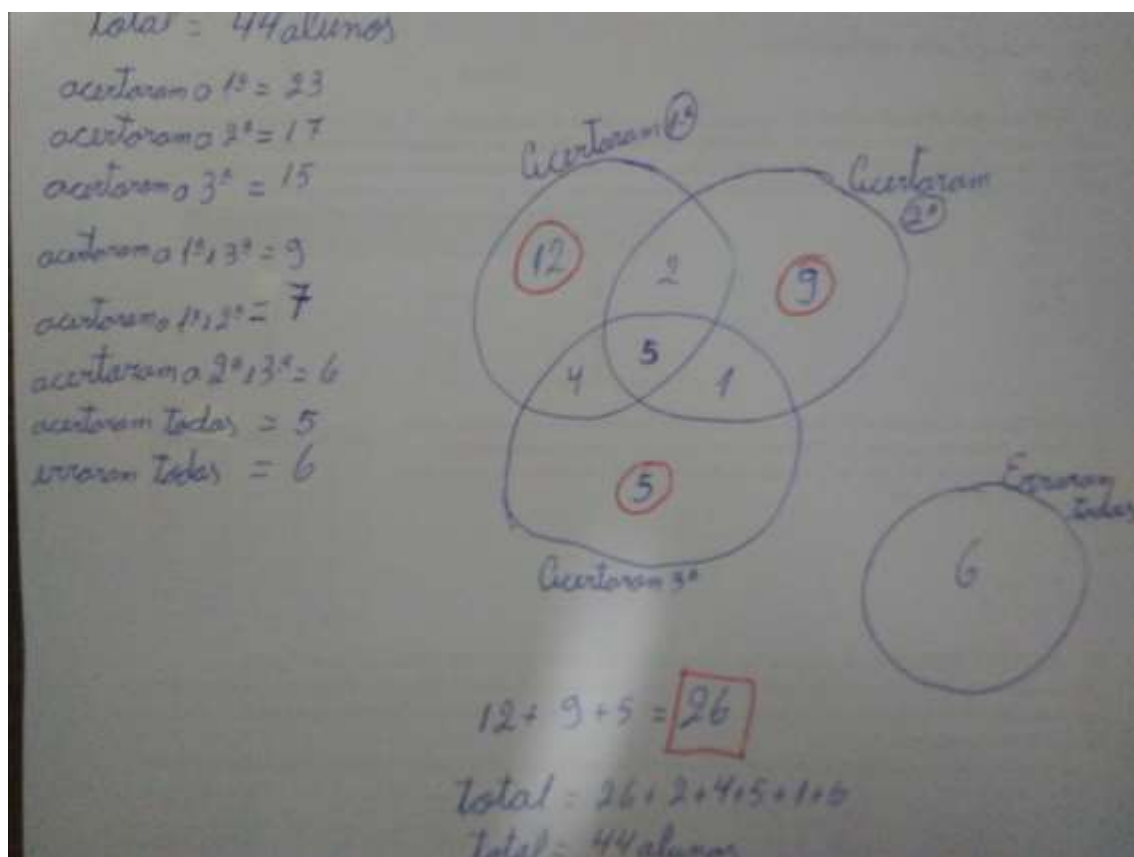 Total = 44 alunos
acertaram a 1ª = 23
acertaram a 2ª = 17
acertaram a 3ª = 15
acertaram a 1ª, 3ª = 9
acertaram a 1ª, 2ª = 7
acertaram a 2ª, 3ª = 6
acertaram todas = 5
erraram todas = 6
Acertaram 1ª
Acertaram
2ª
12
2
9
5
4
1
5
Acertaram 3ª
Erraram
todas
6
12 + 9 + 5 = 26
total = 26 + 2 + 4 + 5 + 1 + 6
total = 44 alunos